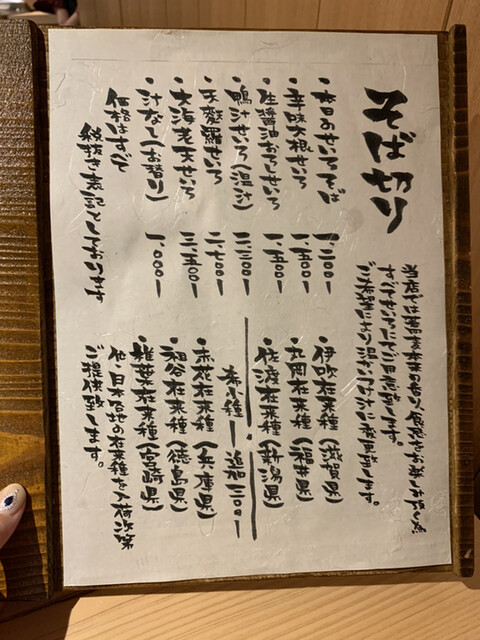 そば切り
・本日のせいろそば 一、二〇〇ー
・辛味大根せいろ 一、五〇〇ー
・生醤油おろしせいろ 一、五〇〇ー
・鴨汁せいろ(温汁) 二、二〇〇ー
・天麩羅せいろ 二、七〇〇ー
・大海老天せいろ 三、五〇〇ー
・汁なし(お替り) 一、〇〇〇ー
価格はすべて
税抜き表記としております
当店では蕎麦本来の香り、食感をお楽しみ頂く為
すべてせいろにてご用意致します。
ご要望により温かい
・伊吹在来種(滋賀県)
・丸岡在来種(福井県)
・佐渡在来種(新潟県)
希少種ー追加二〇〇ー
・赤花在来種(兵庫県)
・祖谷在来種(徳島県)
・椎葉在来種(宮崎県)
他、日本各地の在来種を入荷次第
ご提供致します。